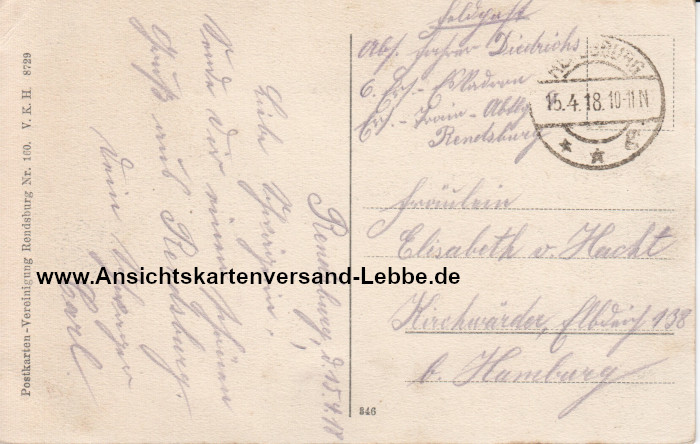 Postkarten-Vereinigung Rendsburg Nr. 160. V. K. H. 8729
Rendsburg, d. 15.4.18
Liebe
Sende dir einen schönen
Gruß aus Rendsburg.
Dein
Carl.
Feldpost
Abs. Fahrer Diedrichs
6. Ers.-Eskadron
Ers.-Train-Abtlg.
Rendsburg
RENDSBURG
15.4.18.10-11N
* * g
Fräulein
Elisabeth v. Hacht
Kirchwärder, Elbdeich 138
b. Hamburg
346
www.Ansichtskartenversand-Lebbe.de